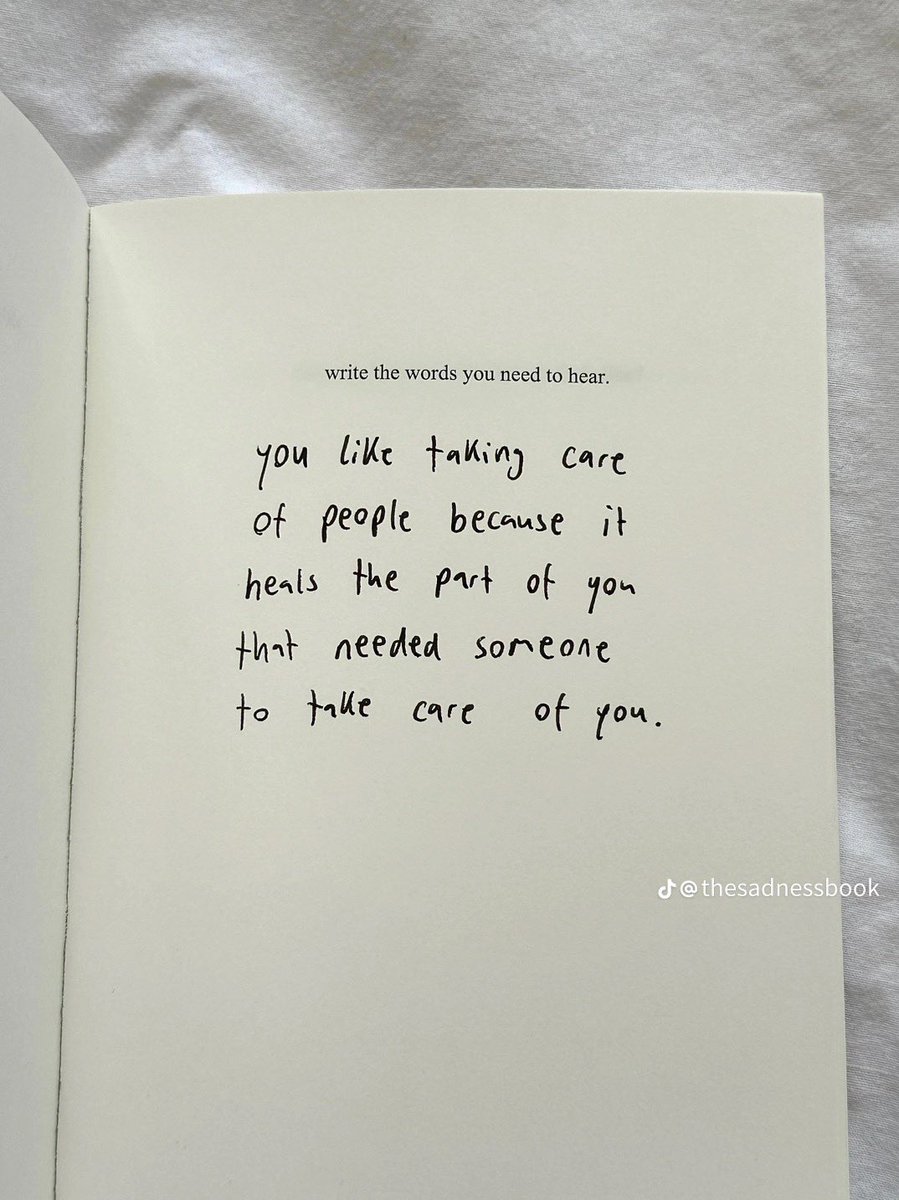 write the words you need to hear.
you like taking care
of people because it
heals the part of you
that needed someone
to take care of you.
@thesadnessbook